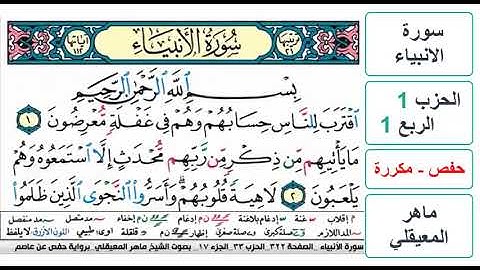 سورة
الانبياء
الحزب 1
الربع 1
حفص - مكررة
ماهر
المعيقلي
ترتيبها
٢١
سُورَةُ الأَنبِيَاءِ
آياتها
١١٢
بِسْمِ ٱللَّهِ ٱلرَّحْمَٰنِ ٱلرَّحِيمِ
ٱقْتَرَبَ لِلنَّاسِ حِسَابُهُمْ وَهُمْ فِي غَفْلَةٍ مُّعْرِضُونَ ١
مَا يَأْتِيهِم مِّن ذِكْرٍ مِّن رَّبِّهِم مُّحْدَثٍ إِلَّا ٱسْتَمَعُوهُ وَهُمْ
يَلْعَبُونَ ٢ لَاهِيَةً قُلُوبُهُمْ وَأَسَرُّوا۟ ٱلنَّجْوَى ٱلَّذِينَ ظَلَمُوا۟
سورة الأنبياء. الصفحة ٣٢٢ الحزب ٣٣ الجزء ١٧. بصوت الشيخ ماهر المعيقلي. برواية حفص عن عاصم